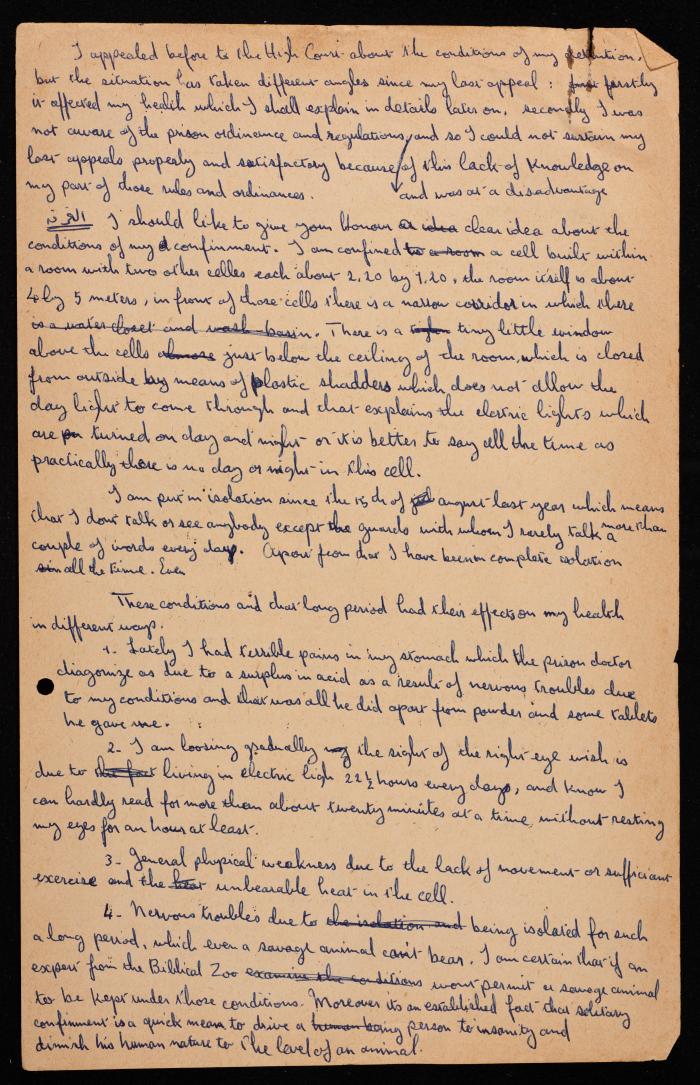 I appealed before to the High Court about the conditions of my detention,
but the situation has taken different angles since my last appeal : firstly
it affected my health which I shall explain in details later on, secondly I was
not aware of the prison ordinance and regulations, and so I could not sustain my
last appeals properly and satisfactory because of this lack of knowledge on
my part of those rules and ordinances. and was at a disadvantage
I should like to give your honour an idea clear idea about the
conditions of my confinment. I am confined to a room a cell built within
a room with two other celles each about 2,20 by 1,20, the room itself is about
4 by 5 meters, in front of those cells there is a narrow corridor in which there
is a water closet and wash basin. There is a tiny little window
above the cells almose just below the ceiling of the room, which is closed
from outside by means of plastic shadders which does not allow the
day light to come through and that explains the electric lights which
are turned on day and night or it is better to say all the time as
practically there is no day or night in this cell.
I am put in isolation since the 15th of august last year which means
that I dont talk or see anybody except the guards with whom I rarely talk a more than
couple of words every day. Apart from that I have been in complete isolation
all the time. Even
These conditions and that long period had their effects on my health
in different ways.
1. Lately I had terrible pains in my stomach which the prison doctor
diagonize as due to a surplus in acid as a result of nervous troubles due
to my conditions and that was all he did apart from powder and some tablets
he gave me.
2- I am loosing gradually my the sight of the right eye wish is
due to the fact living in electric ligh 22 1/2 hours every day, and know I
can hardly read for more them about twenty minutes at a time without resting
my eyes for an hour at least.
3- General physical weakness due to the lack of movement or sufficiant
exercise and the heat unbearable heat in the cell.
4- Nervous troubles due to the isolation and being isolated for such
a long period, which even a savage animal can't bear. I am certain that if an
expert from the Biblical Zoo examine the conditions wont permit a savage animal
to be kept under those conditions. Moreover its an established fact that solitary
confinment is a quick mean to drive a human being person to insanity and
dimish his human nature to the level of an animal.